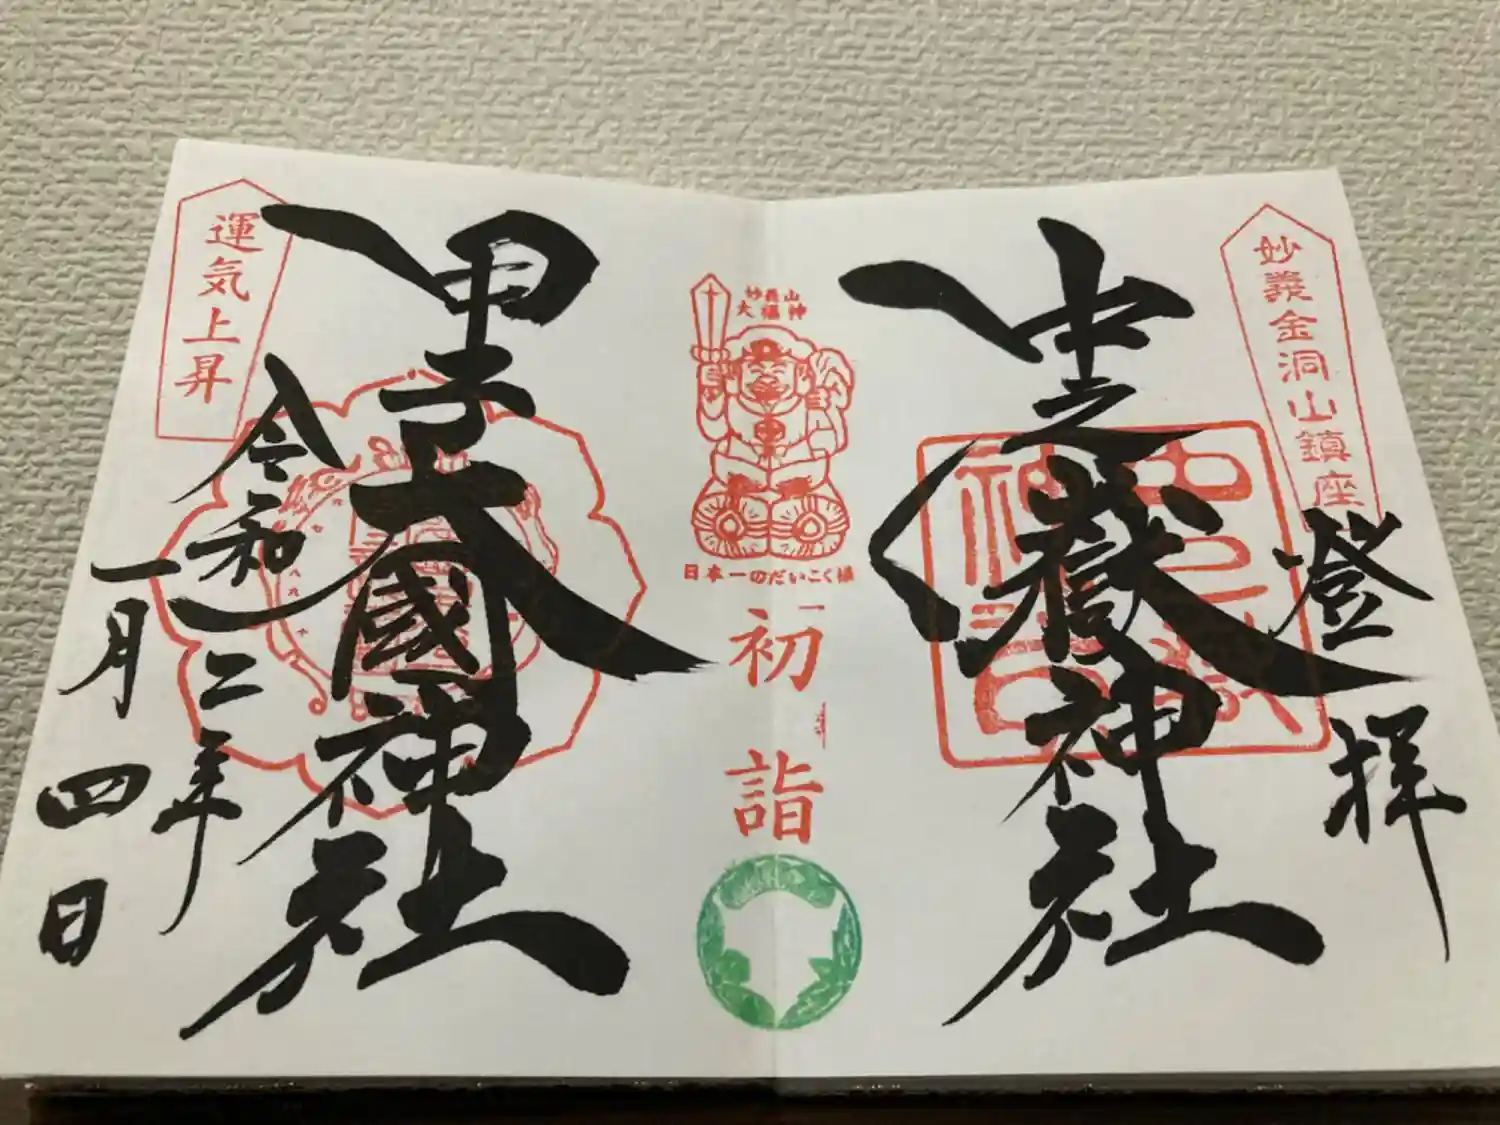 妙義金洞山鎮座
登拝
中之嶽神社
中之嶽神社
妙義山
大福神
日本一のだいこく様
初詣
甲子大國神社
運気上昇
令和二年
一月四日